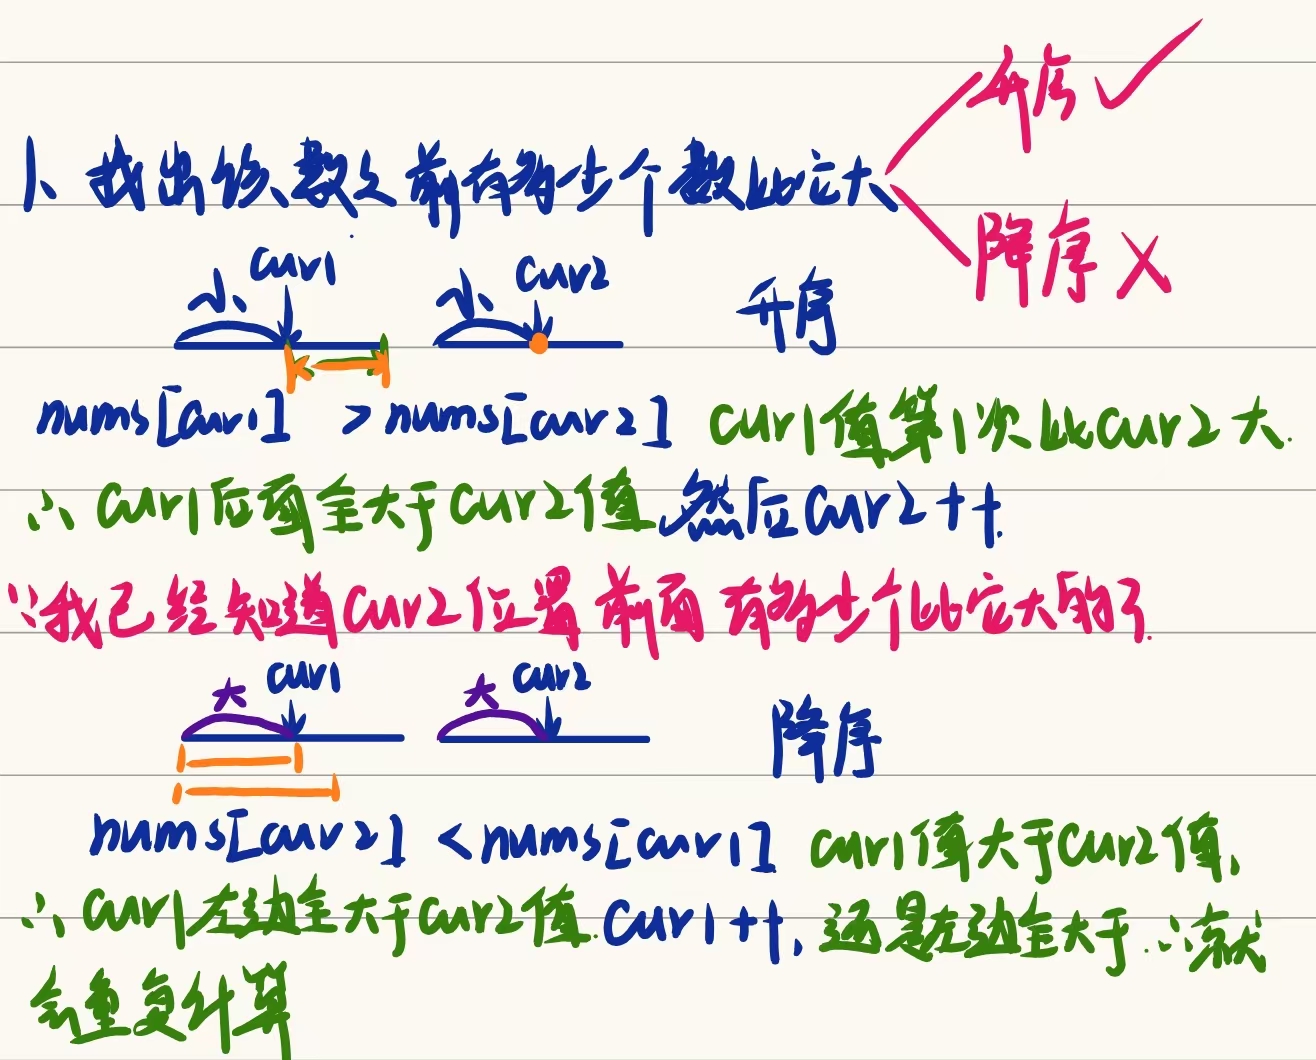 升序✓
1、找出该数之前有多少个数比它大
降序✗
小 cur1 小 cur2 升序
nums[cur1] > nums[cur2] cur1值第1次比cur2大.
∴ cur1后面全大于cur2值 然后cur2++.
∵我已经知道cur2位置前面有多少个比它大的了.
大 cur1 大 cur2 降序
nums[cur2] < nums[cur1] cur1值大于cur2值,
∴ cur1左边全大于cur2值. cur1++, 还是左边全大于. ∴就
会重复计算